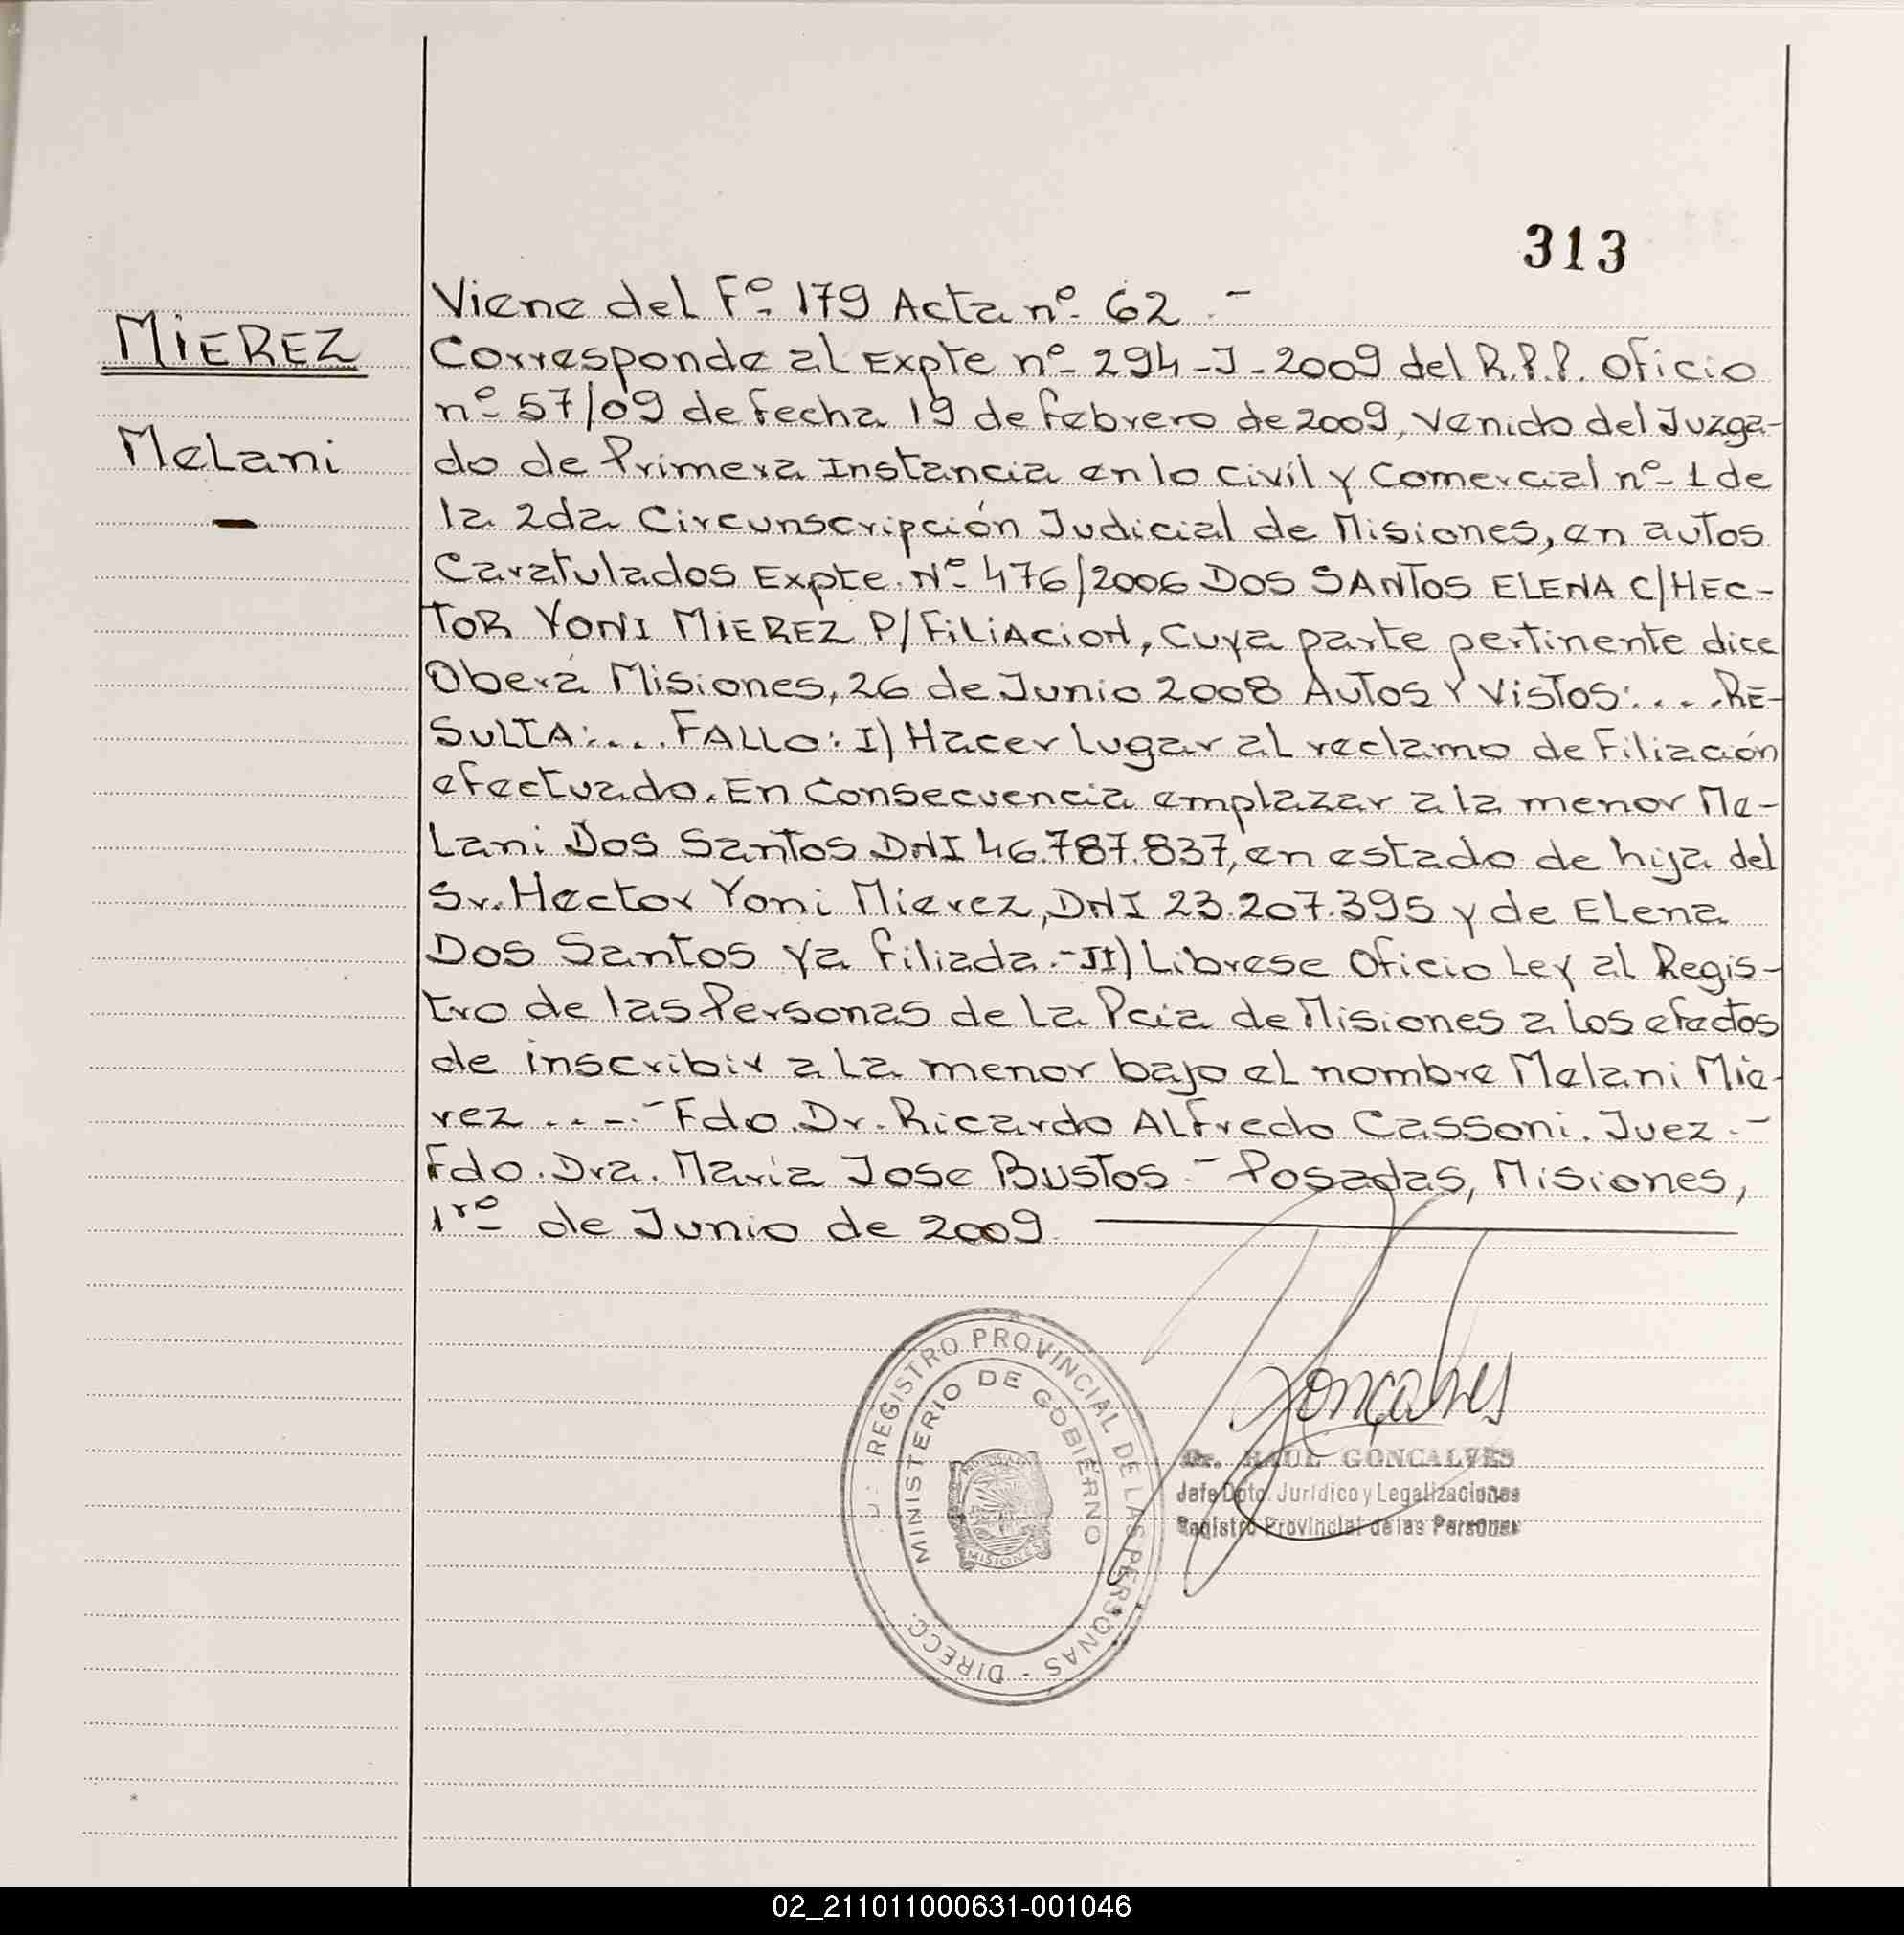 313
MIEREZ
Melani
Viene del Fº 179 Acta nº 62.-
Corresponde al Expte nº 294-J-2009 del R.P.P. Oficio
nº 57/09 de fecha 19 de febrero de 2009, venido del Juzga-
do de Primera Instancia en lo Civil y Comercial nº 1 de
la 2da Circunscripción Judicial de Misiones, en autos
Caratulados Expte. Nº 476/2006 DOS SANTOS ELENA C/HEC-
TOR YONI MIEREZ P/FILIACION, cuya parte pertinente dice
Oberá Misiones, 26 de Junio 2008 AUTOS Y VISTOS:.... RE-
SULTA:.... FALLO: I) Hacer lugar al reclamo de Filiación
efectuado. En Consecuencia emplazar a la menor Me-
lani Dos Santos DNI 46.787.837, en estado de hija del
Sr. Hector Yoni Mierez, DNI 23.207.395 y de Elena
Dos Santos ya filiada.- II) Librese Oficio Ley al Regis-
tro de las Personas de la Pcia de Misiones a los efectos
de inscribir a la menor bajo el nombre Melani Mie-
rez ....- Fdo. Dr. Ricardo Alfredo Cassoni. Juez.-
Fdo. Dra. Maria Jose Bustos.- Posadas, Misiones,
1rº de Junio de 2009
REGISTRO PROVINCIAL DE LAS PERSONAS - DIRECC.
MINISTERIO DE GOBIERNO
MISIONES
Gonçalves
Dr. RAUL GONCALVES
Jefe Dpto. Jurídico y Legalizaciones
Registro Provincial de las Personas
02_211011000631-001046